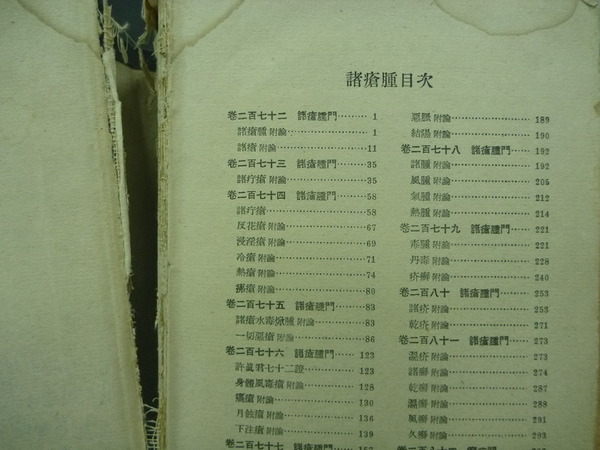 諸瘡腫目次
卷二百七十二 諸瘡腫門………1
諸瘡腫 附論………1
諸瘡 附論………11
卷二百七十三 諸瘡腫門………35
諸疔瘡 附論………35
卷二百七十四 諸瘡腫門………58
諸疔瘡………58
反花瘡 附論………67
浸淫瘡 附論………69
冷瘡 附論………71
熱瘡 附論………74
瘡 附論………80
卷二百七十五 諸瘡腫門………83
諸瘡水毒焮腫 附論………83
一切惡瘡 附論………86
卷二百七十六 諸瘡腫門………123
許眞君七十二證………123
身體風毒瘡 附論………128
瘑瘡 附論………130
月蝕瘡 附論………136
下注瘡 附論………139
卷二百七十七 諸瘡腫門………157
惡 附論………189
結 附論………190
卷二百七十八 諸瘡腫門………192
諸腫 附論………192
風腫 附論………205
氣腫 附論………212
熱腫 附論………214
卷二百七十九 諸瘡腫門………221
毒腫 附論………221
丹毒 附論………228
疥癬 附論………240
卷二百八十 諸瘡腫門………253
諸疥 附論………253
乾疥 附論………271
卷二百八十一 諸瘡腫門………273
濕疥 附論………273
諸癬 附論………274
乾癬 附論………287
濕癬 附論………288
風癬 附論………291
久癬 附論………293